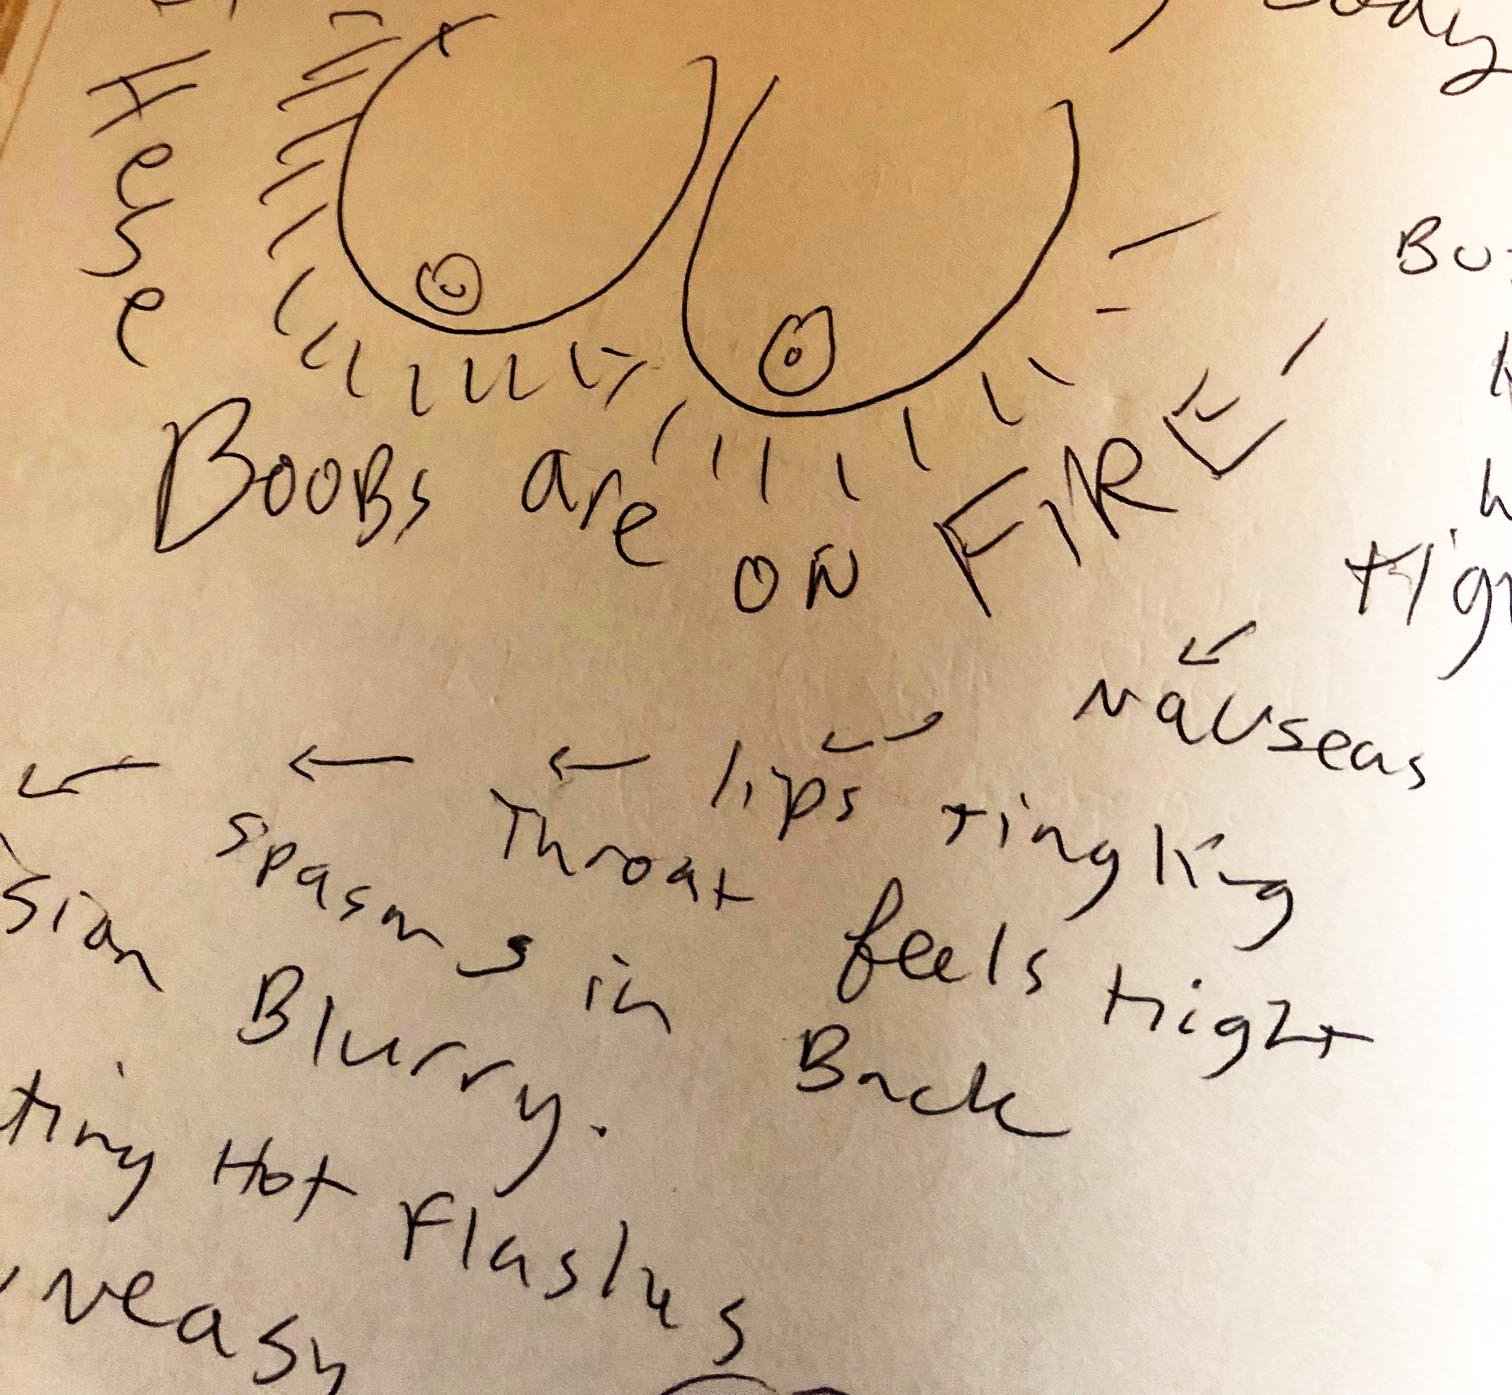 body
These
Boobs are on FIRE!
nauseas
lips tingling
Throat feels tight
spasms in Back
sion Blurry.
ting Hot Flashes
uneasy